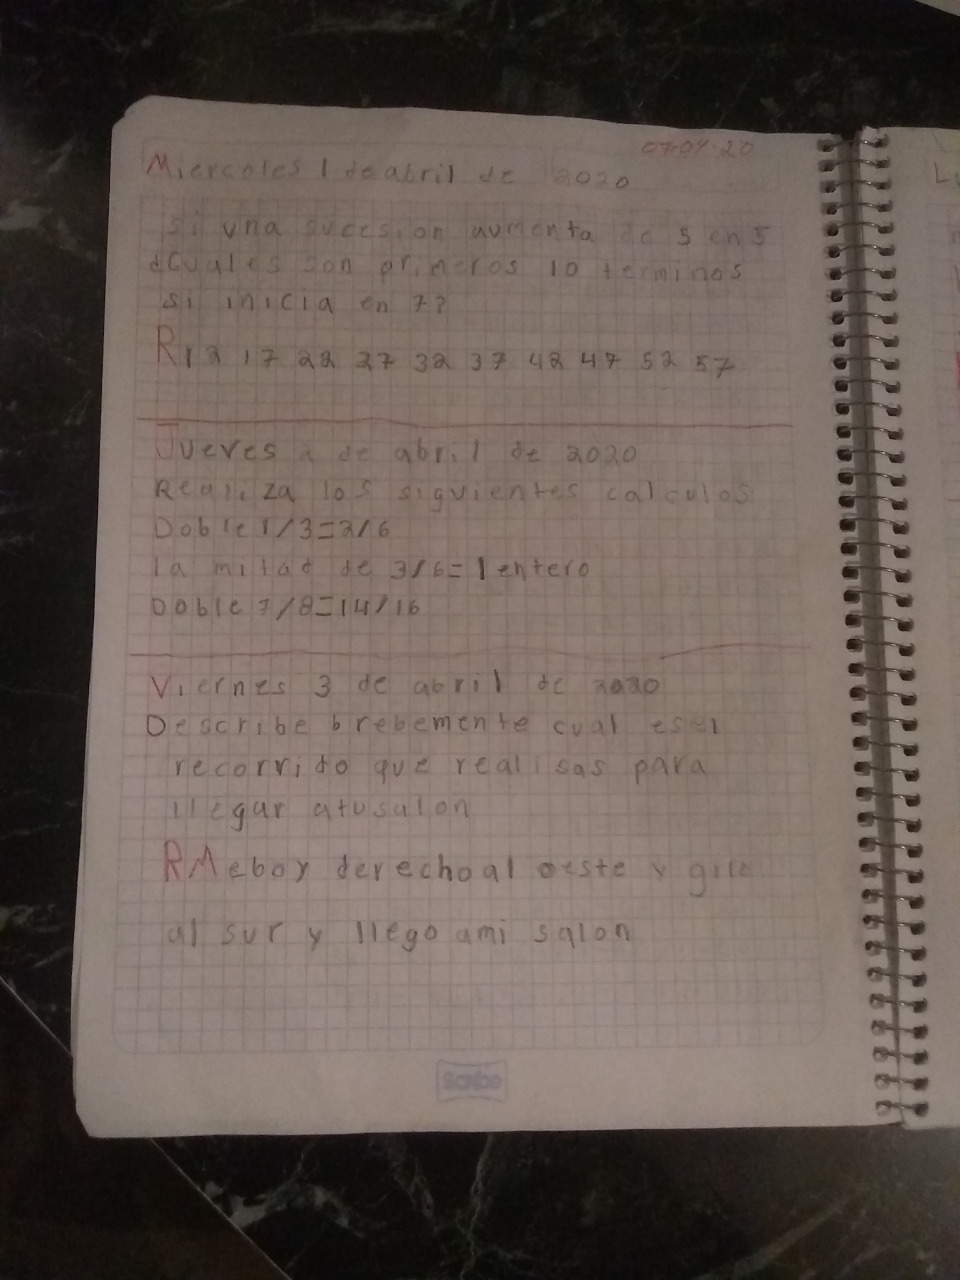 07-04-20
Miercoles 1 de abril de 2020
si una sucesion aumenta de 5 en 5
¿Cuales son primeros 10 terminos
si inicia en 7?
R 12 17 22 27 32 37 42 47 52 57
Jueves 2 de abril de 2020
Realiza los siguientes calculos
Doble 1/3=2/6
la mitad de 3/6=1 entero
Doble 7/8=14/16
Viernes 3 de abril de 2020
Describe brebemente cual es el
recorrido que realisas para
llegar atusalon
R Meboy derechoal oeste y giro
al sur y llego ami salon
Scribe
L